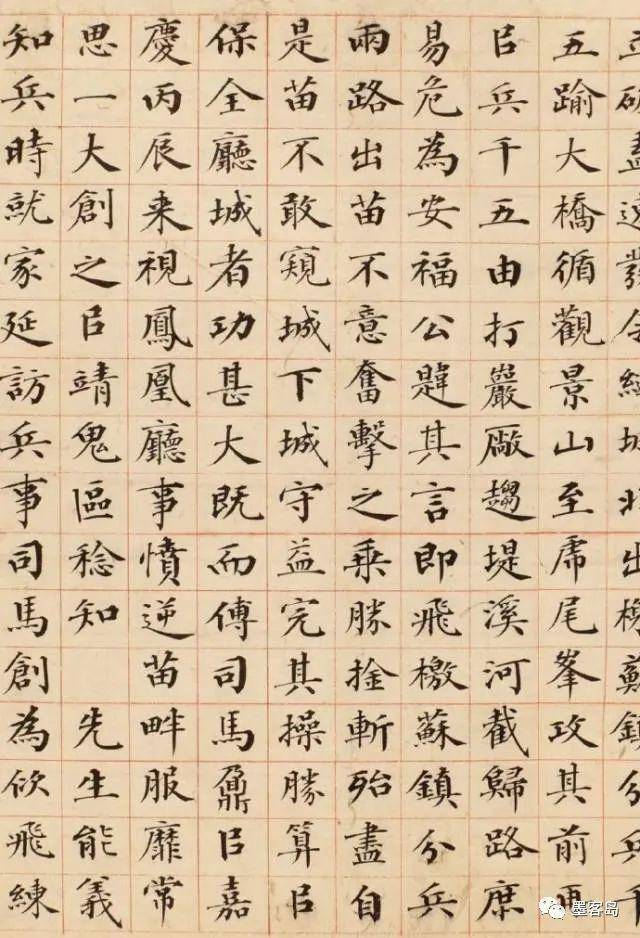 盡令出鎮分兵千
五踰大橋循觀景山至虎尾峯攻其前
㠯兵千五由打巖厰趨堤溪河截歸路庶
易危為安福公韙其言即飛檄蘇鎮分兵
兩路出苗不意奮擊之乘勝捦斬殆盡自
是苗不敢窺城下城守益完其操勝算㠯
保全廳城者功甚大既而傅司馬鼐㠯嘉
慶丙辰来視鳳凰廳事憤逆苗畔服靡常
思一大創之㠯靖鬼區稔知 先生能義
知兵時就家延訪兵事司馬創為佽飛練
墨客岛